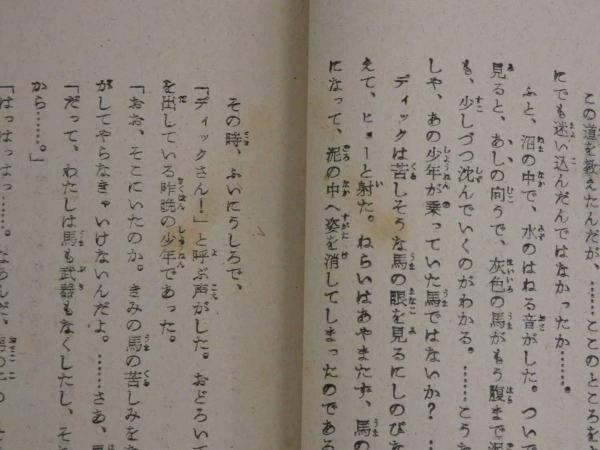 この道を教えたんだが、……ここのところを
にでも迷い込んだんではなかったか……。
ふと、沼の中で、水のはねる音がした。ついで
見ると、あしの向うで、灰色の馬がもう腹まで泥
も、少しづつ沈んでいくのがわかる。……こうな
しや、あの少年が乗っていた馬ではないか？
ディックは苦しそうな馬の眼を見るにしのびな
えて、ヒョーと射た。ねらいはあやまたず、馬の
になって、泥の中へ姿を消してしまったのである
その時、ふいにうしろで、
「ディックさん！」と呼ぶ声がした。おどろいて
を出している昨晩の少年であった。
「おお、そこにいたのか。きみの馬の苦しみを
がしてやらなきゃいけないんだよ。……さあ、
「だって、わたしは馬も武器もなくしたし、そ
から……。」
「はっはっはっ……。なあんだ、